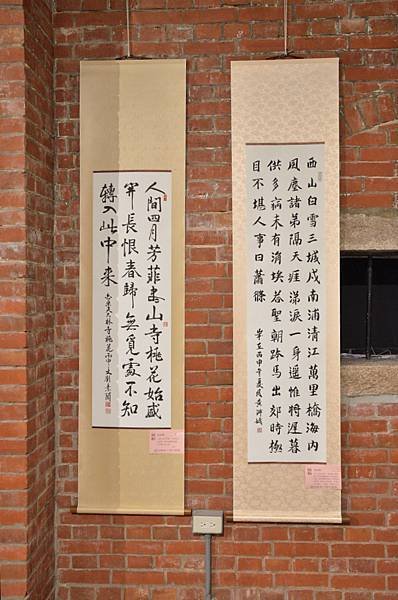 西山白雪三城戍南浦清江萬里橋海內
風塵諸弟隔天涯涕淚一身遙惟將遲暮
供多病未有涓埃答聖朝跨馬出郊時極
目不堪人事日蕭條
丙申年夏
人間四月芳菲盡山寺桃花始盛
開長恨春歸無覓處不知
轉入此中來
大林寺桃花丙申